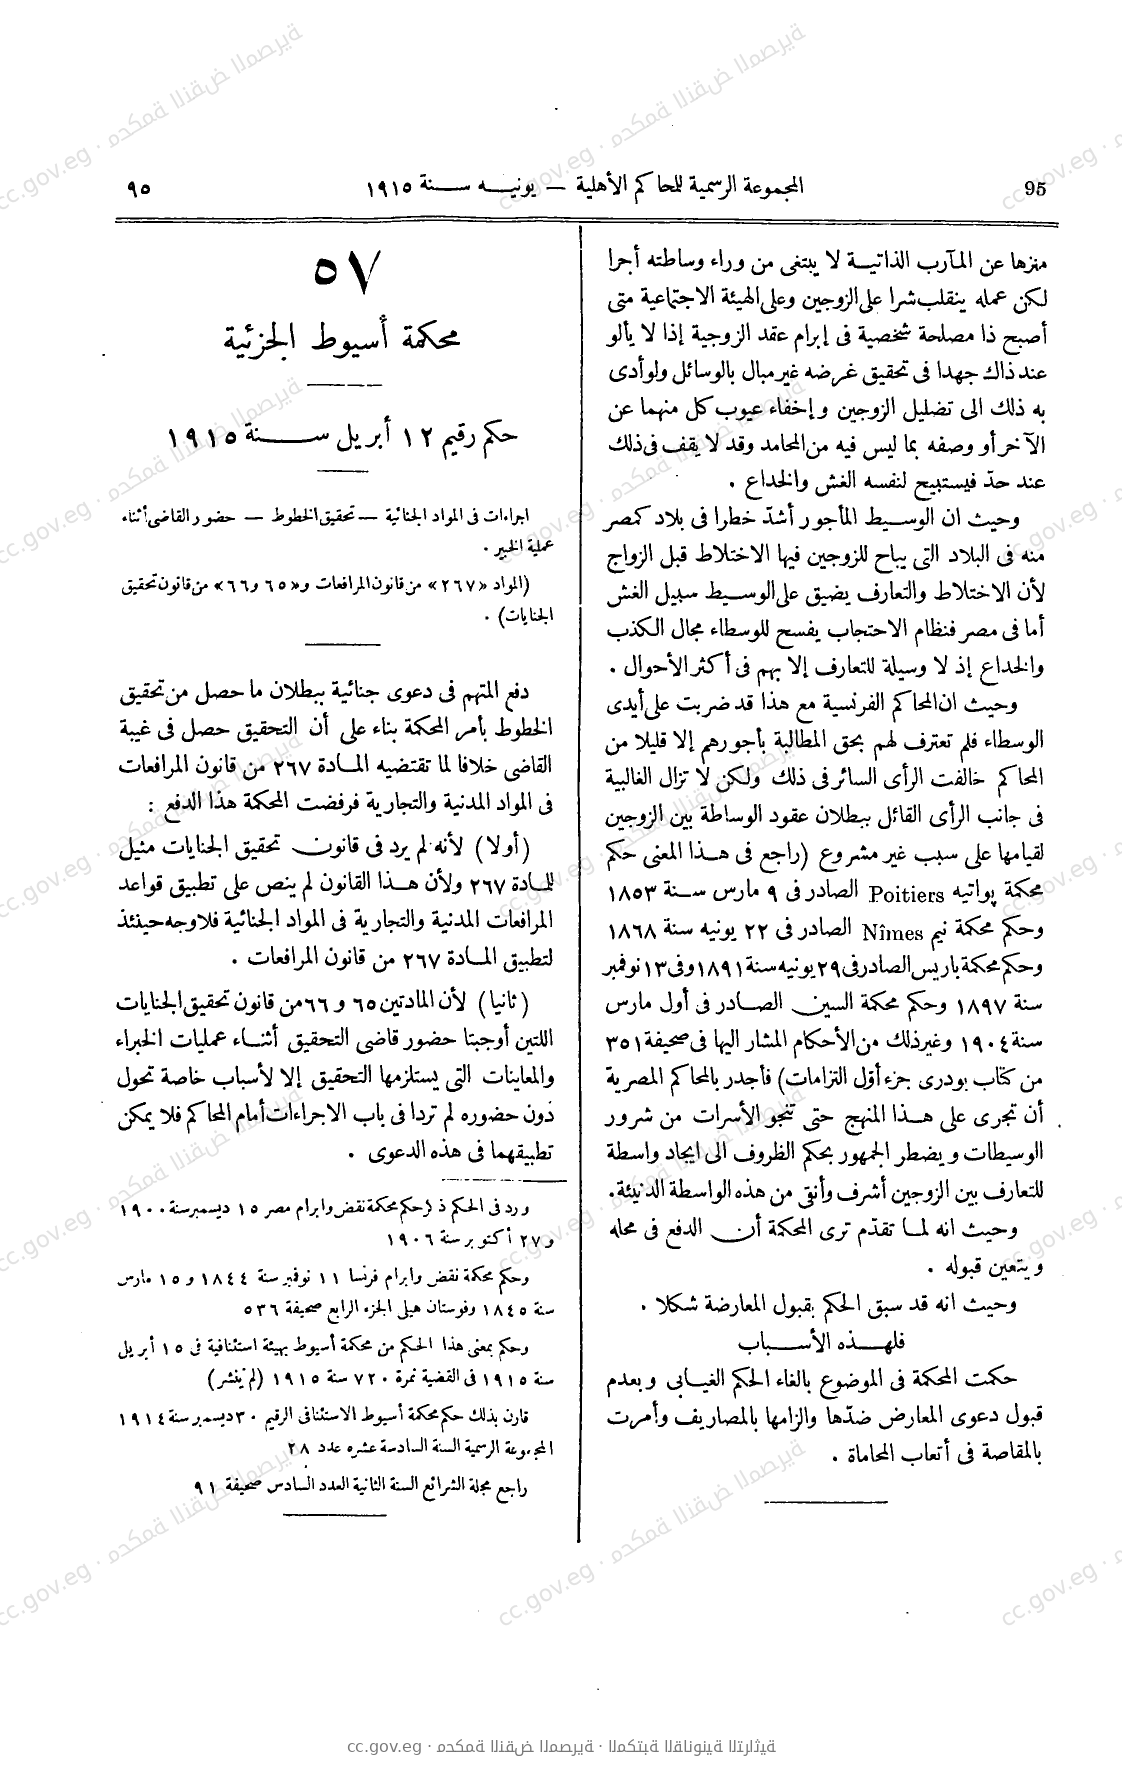 95
المجموعة الرسمية للمحاكم الأهلية — يونيه سنة ١٩١٥
٩٥
منزها عن المآرب الذاتية لا يبتغى من وراء وساطته أجرا
لكن عمله ينقلب شرا على الزوجين وعلى الهيئة الاجتماعية متى
أصبح ذا مصلحة شخصية فى إبرام عقد الزوجية إذا لا يألو
عند ذاك جهدا فى تحقيق غرضه غير مبال بالوسائل ولو أدى
به ذلك الى تضليل الزوجين وإخفاء عيوب كل منهما عن
الآخر أو وصفه بما ليس فيه من المحامد وقد لا يقف فى ذلك
عند حدّ فيستبيح لنفسه الغش والخداع .
وحيث ان الوسيط المأجور أشدّ خطرا فى بلاد كمصر
منه فى البلاد التى يباح للزوجين فيها الاختلاط قبل الزواج
لأن الاختلاط والتعارف يضيق على الوسيط سبيل الغش
أما فى مصر فنظام الاحتجاب يفسح للوسطاء مجال الكذب
والخداع إذ لا وسيلة للتعارف إلا بهم فى أكثر الأحوال .
وحيث ان المحاكم الفرنسية مع هذا قد ضربت على أيدى
الوسطاء فلم تعترف لهم بحق المطالبة بأجورهم إلا قليلا من
المحاكم خالفت الرأى السائر فى ذلك ولكن لا تزال الغالبية
فى جانب الرأى القائل ببطلان عقود الوساطة بين الزوجين
لقيامها على سبب غير مشروع (راجع فى هذا المعنى حكم
محكمة پواتيه Poitiers الصادر فى ٩ مارس سنة ١٨٥٣
وحكم محكمة نيم Nîmes الصادر فى ٢٢ يونيه سنة ١٨٦٨
وحكم محكمة باريس الصادر فى ٢٩ يونيه سنة ١٨٩١ وفى ١٣ نوفمبر
سنة ١٨٩٧ وحكم محكمة السين الصادر فى أول مارس
سنة ١٩٠٤ وغير ذلك من الأحكام المشار اليها فى صحيفة ٣٥١
من كتاب بودرى جزء أوّل التزامات) فأجدر بالمحاكم المصرية
أن تجرى على هذا المنهج حتى تنجو الأسرات من شرور
الوسيطات ويضطر الجمهور بحكم الظروف الى ايجاد واسطة
للتعارف بين الزوجين أشرف وأنقى من هذه الواسطة الدنيئة .
وحيث انه لما تقدّم ترى المحكمة أن الدفع فى محله
ويتعين قبوله .
وحيث انه قد سبق الحكم بقبول المعارضة شكلا .
فلهذه الأسباب
حكمت المحكمة فى الموضوع بالغاء الحكم الغيابى وبعدم
قبول دعوى المعارض ضدّها والزامها بالمصاريف وأمرت
بالمقاصة فى أتعاب المحاماة .
٥٧
محكمة أسيوط الجزئية
حكم رقيم ١٢ أبريل سنة ١٩١٥
اجراءات فى المواد الجنائية — تحقيق الخطوط — حضور القاضى أثناء
عملية الخبير .
(المواد «٢٦٧» من قانون المرافعات و«٦٥ و٦٦» من قانون تحقيق
الجنايات) .
دفع المتهم فى دعوى جنائية ببطلان ما حصل من تحقيق
الخطوط بأمر المحكمة بناء على أن التحقيق حصل فى غيبة
القاضى خلافا لما تقتضيه المادة ٢٦٧ من قانون المرافعات
فى المواد المدنية والتجارية فرفضت المحكمة هذا الدفع :
(أولا) لأنه لم يرد فى قانون تحقيق الجنايات مثيل
للمادة ٢٦٧ ولأن هذا القانون لم ينص على تطبيق قواعد
المرافعات المدنية والتجارية فى المواد الجنائية فلا وجه حينئذ
لتطبيق المادة ٢٦٧ من قانون المرافعات .
(ثانيا) لأن المادتين ٦٥ و ٦٦ من قانون تحقيق الجنايات
اللتين أوجبتا حضور قاضى التحقيق أثناء عمليات الخبراء
والمعاينات التى يستلزمها التحقيق إلا لأسباب خاصة تحول
دون حضوره لم تردا فى باب الاجراءات أمام المحاكم فلا يمكن
تطبيقهما فى هذه الدعوى .
ورد فى الحكم ذكر حكم محكمة نقض وابرام مصر ١٥ ديسمبر سنة ١٩٠٠
و٢٧ أكتوبر سنة ١٩٠٦
وحكم محكمة نقض وابرام فرنسا ١١ نوفمبر سنة ١٨٤٤ و ١٥ مارس
سنة ١٨٤٥ وفوستان هيلى الجزء الرابع صحيفة ٥٣٦
وحكم بمعنى هذا الحكم من محكمة أسيوط بهيئة استئنافية فى ١٥ أبريل
سنة ١٩١٥ فى القضية نمرة ٧٢٠ سنة ١٩١٥ (لم ينشر)
قارن بذلك حكم محكمة أسيوط الاستئنافى الرقيم ٣٠ ديسمبر سنة ١٩١٤
المجموعة الرسمية السنة السادسة عشره عدد ٢٨
راجع مجلة الشرائع السنة الثانية العدد السادس صحيفة ٩١
cc.gov.eg · محكمة النقض المصرية · المكتبة القانونية التراثية